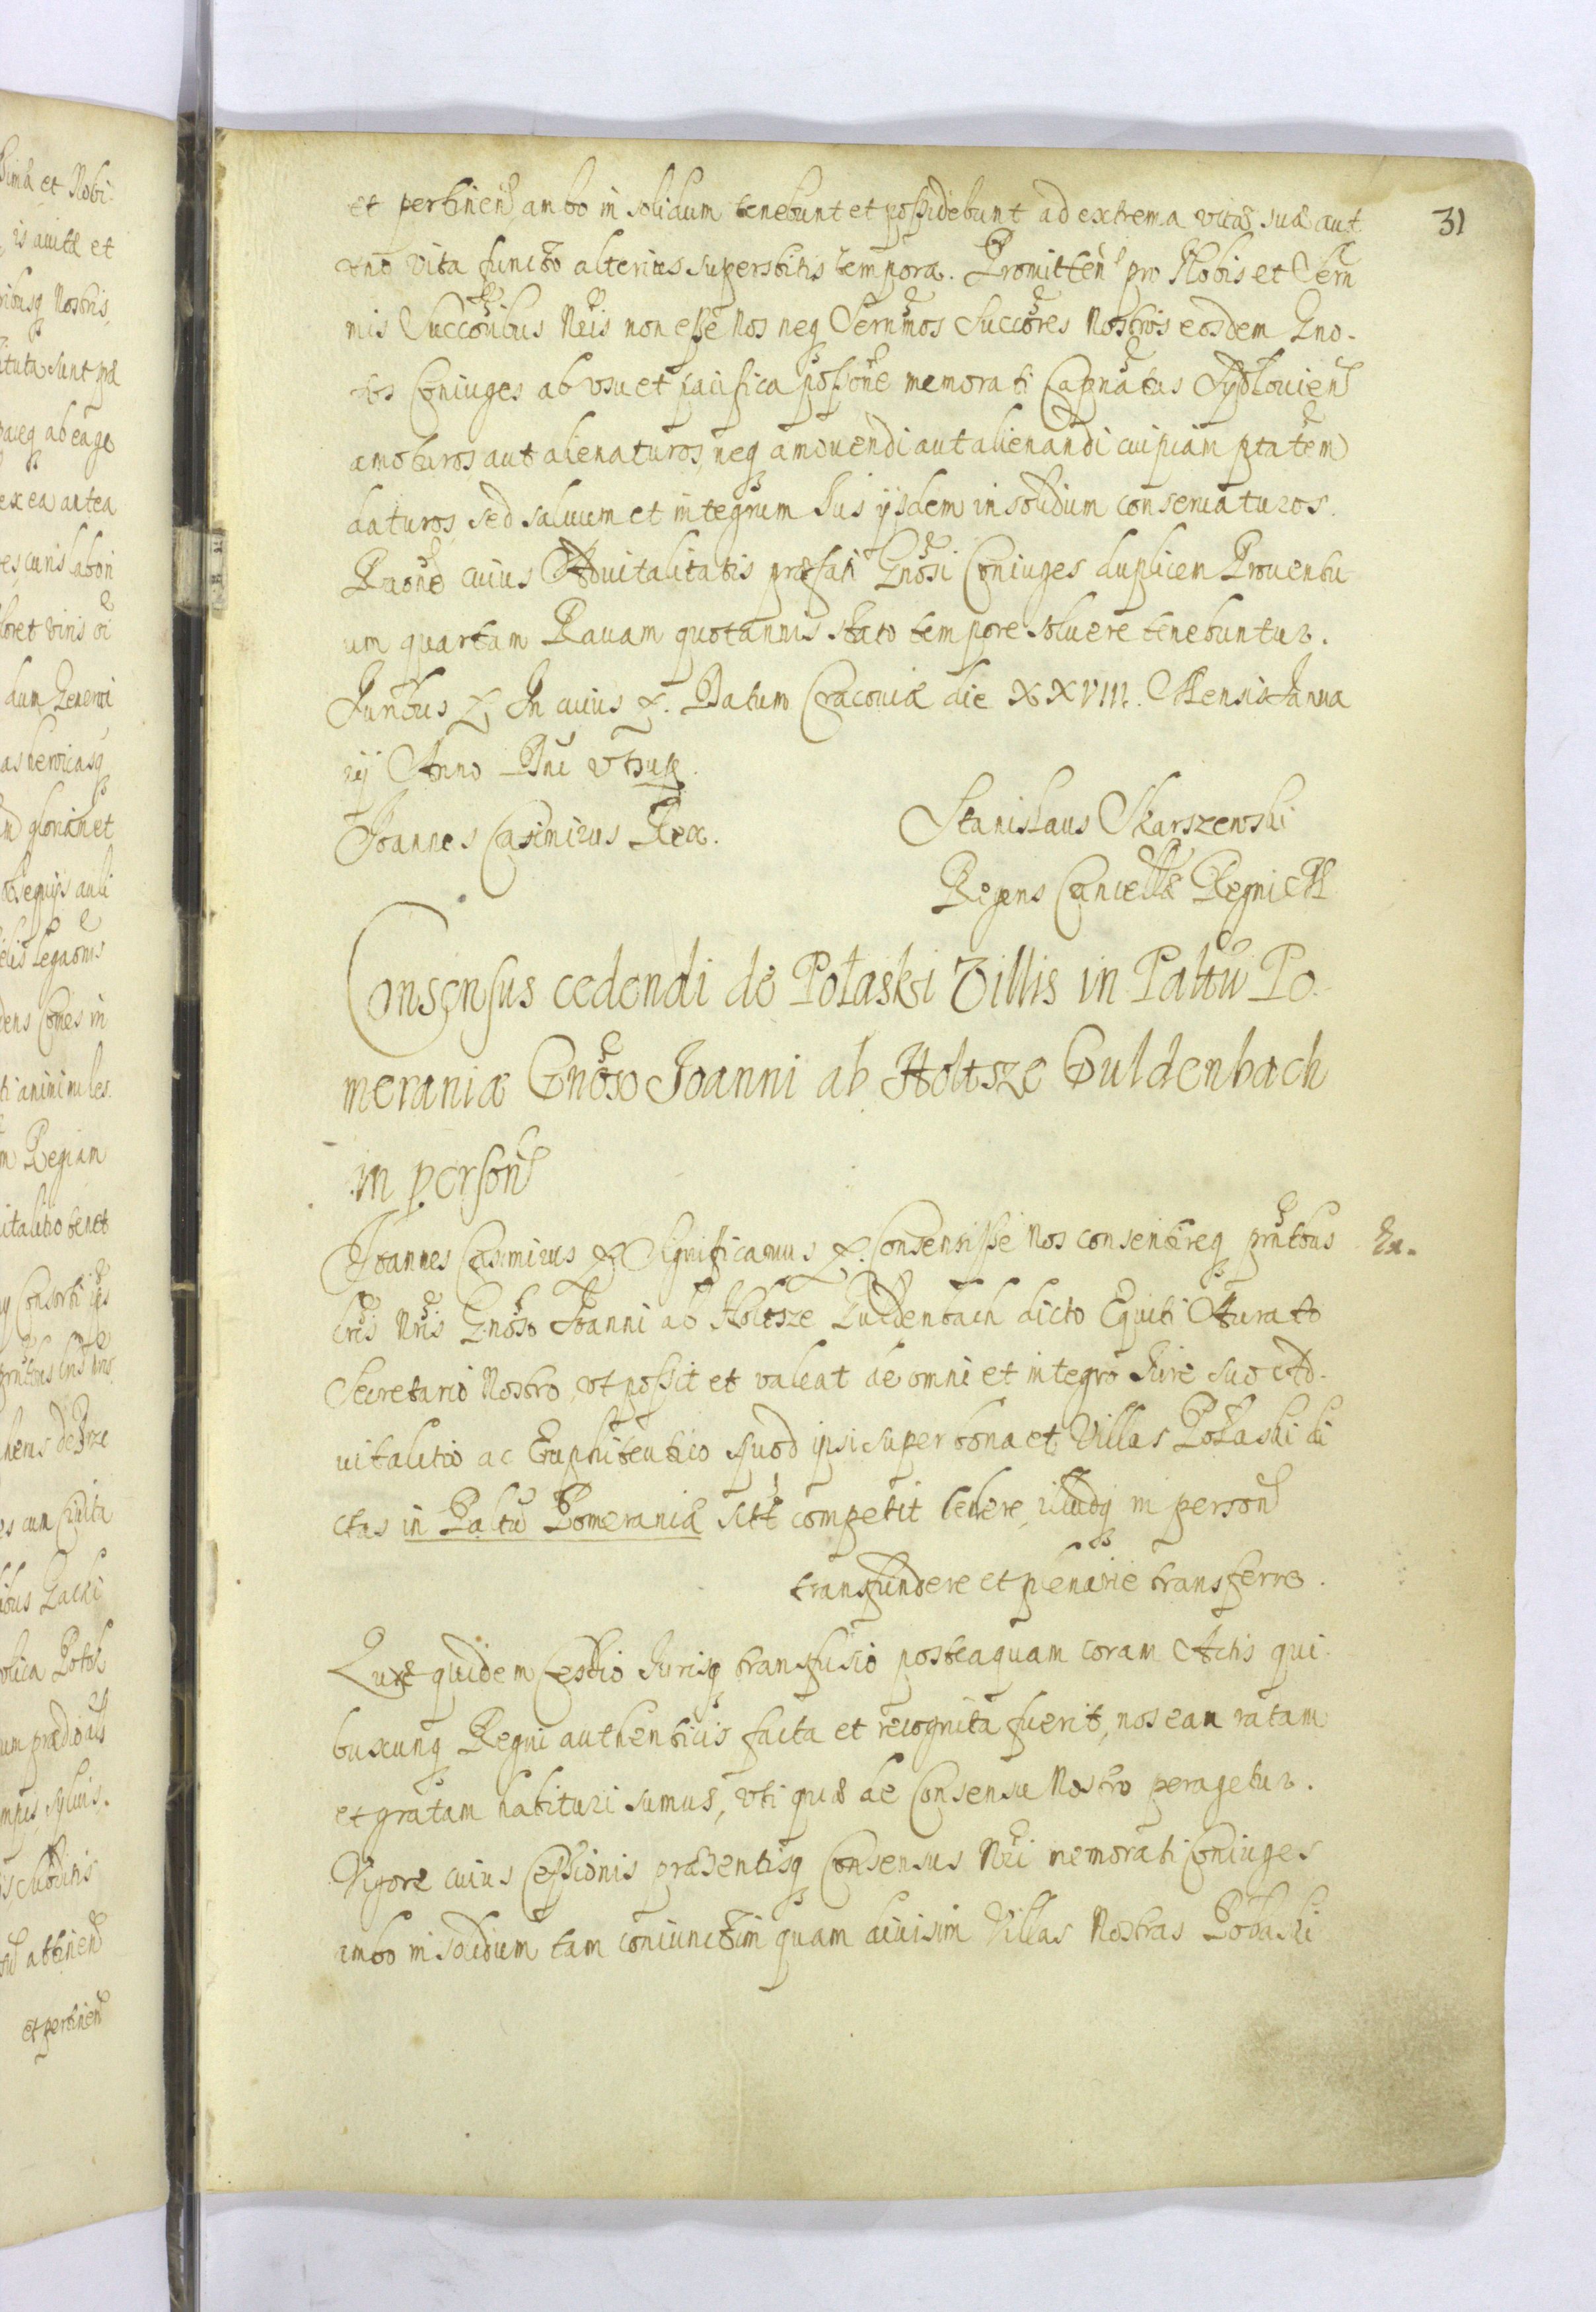 31
et pertinen, ambo in solidum tenebunt et possidebunt ad extrema vitæ suæ aut
uno vita functo alterius superstitis tempora. Promitten pro Nobis et Sernn
mis Succoribus Nris non esse Nos neq Sernmos Succores Nostros eosdem Gno-
sos Coniuges ab usu et pacifica possone memorati Capnatus Sydloviens
amoturos, aut alienaturos, neq amovendi aut alienandi cuipiam ptatem
daturos, sed salvum et integrum Ius ijsdem in solidum conservaturos.
Raone cuius Advitalitatis præfati Gnosi Coniuges duplicem Proventu
um quartam Ravam quotannis stato tempore solvere tenebuntur.
Iuribus &. In cuius &. Datum Cracoviæ die XXVIII. Mensis Janua
rij Anno Dni ut sup.
Joannes Casimirus Rex.
Stanislaus Skarszewski
Regens Cancellæ Regni M
Consensus cedendi de Połaski Villis in Paltu Po-
meraniæ Gnoso Joanni ab Holtsze Guldenbach
in person
Joannes Casimirus & Significamus &. Consensisse Nos consentireq pntbus
lris Nris Gnoso Joanni ab Holtsze Guldenbach dicto Equiti Aurato
Secretario Nostro, ut possit et valeat de omni et integro Iure suo Ad-
vitalitio ac Emphiteutico quod ipsi super bona et Villas Połaski di
ctas in Paltu Pomeraniæ sitt competit cedere, illudq in person
transfundere et plenarie transferre.
Quæ quidem Cessio Iurisq transfusio posteaquam coram Actis qui-
buscunq Regni authenticis facta et recognita fuerit, nos eam ratam
et gratam habituri sumus, uti quæ de Consensu Nostro peragetur.
Vigore cuius Cessionis præsentisq Consensus Nri memorati Coniuges
ambo in solidum tam coniunctim quam divisim Villas Nostras Połaski